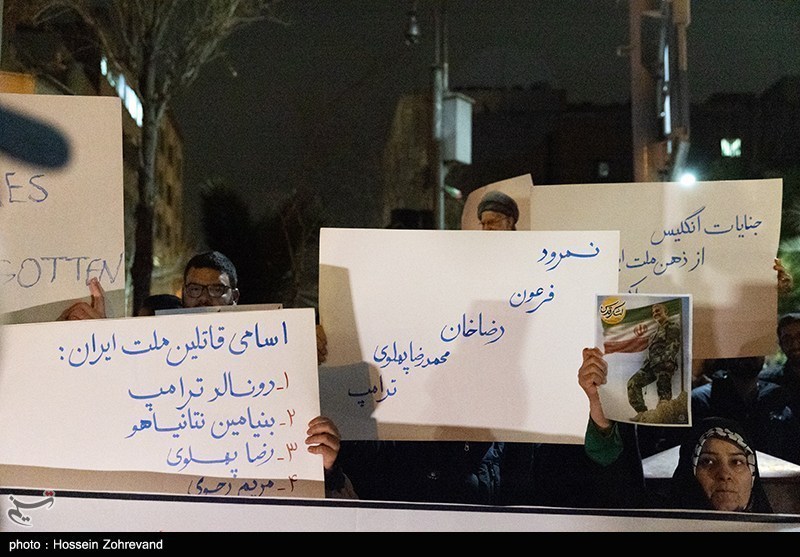 ES
GOTTEN
اسامی قاتلین ملت ایران:
۱- دونالد ترامپ
۲- بنیامین نتانیاهو
۳- رضا پهلوی
۴- مریم رجوی
نمرود
فرعون
رضاخان
محمدرضا پهلوی
ترامپ
جنایات انگلیس
از ذهن ملت
photo : Hossein Zohrevand